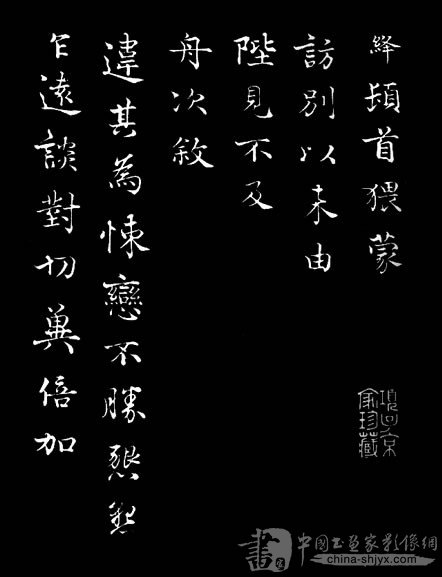 絳頓首猥蒙
訪別以未由
陛見不及
舟次敘
違其為悚戀不勝懇懇
乍遠談對切冀倍加
項子京
家珍藏
書 中國书画家影像網
www.china-shjyx.com